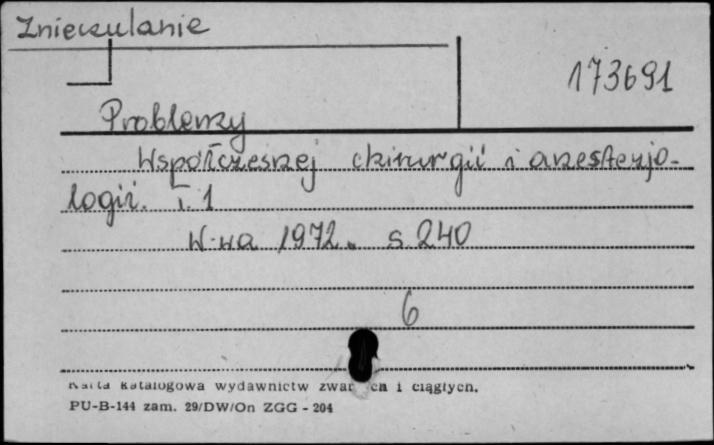 Znieczulanie
173691
Problemy
Współczesnej chirurgii i anestezjo-
logii. T. 1
W-wa 1972. s. 240
6
Karta katalogowa wydawnictw zwar ch i ciągłych.
PU-B-144 zam. 29/DW/On ZGG - 204